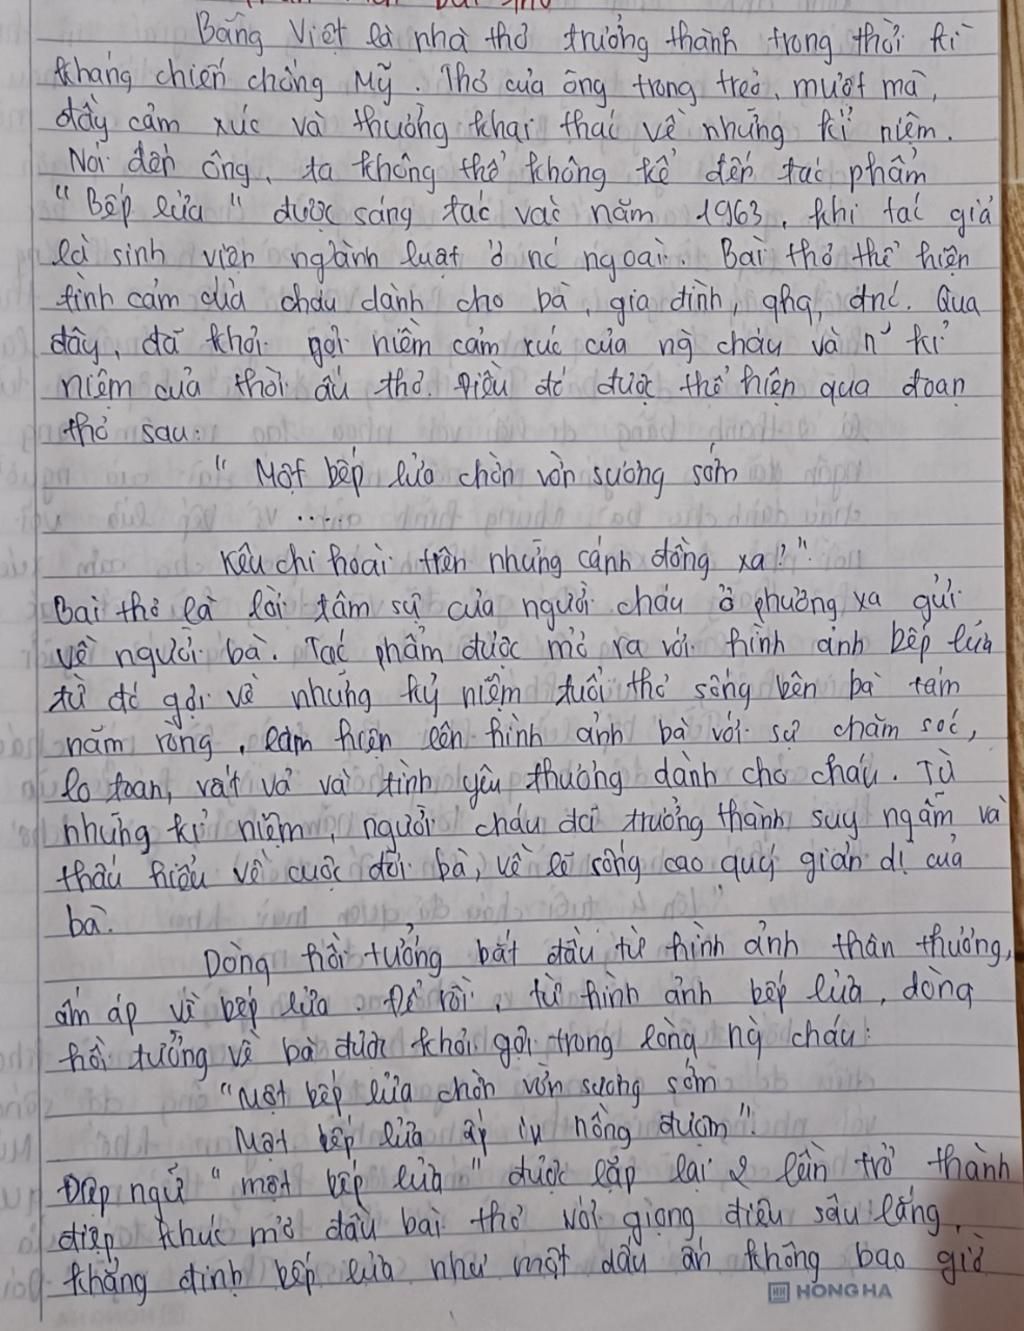 Bằng Việt là nhà thơ trưởng thành trong thời kì
kháng chiến chống Mỹ. Thơ của ông trong trẻo, mượt mà,
đầy cảm xúc và thường khai thác về những kỉ niệm.
Nói đến ông, ta không thể không kể đến tác phẩm
"Bếp lửa" được sáng tác vào năm 1963, khi tác giả
là sinh viên ngành luật ở nc ngoài. Bài thơ thể hiện
tình cảm của cháu dành cho bà, gia đình, qhq, đnc. Qua
đây, đã khơi gợi niềm cảm xúc của ng cháu và n~ kỉ
niệm của thời ấu thơ. Điều đó được thể hiện qua đoạn
thơ sau:
"Một bếp lửa chờn vờn sương sớm
.....
Kêu chi hoài trên những cánh đồng xa?"
Bài thơ là lời tâm sự của người cháu ở phương xa gửi
về người bà. Tác phẩm được mở ra với hình ảnh bếp lửa
từ đó gợi về những kỷ niệm tuổi thơ sống bên bà tám
năm ròng, làm hiện lên hình ảnh bà với sự chăm sóc,
lo toan, vất vả và tình yêu thương dành cho cháu. Từ
những kỉ niệm, người cháu đã trưởng thành suy ngẫm và
thấu hiểu về cuộc đời bà, về lẽ sống cao quý giản dị của
bà.
Dòng hồi tưởng bắt đầu từ hình ảnh thân thương,
ấm áp về bếp lửa. Để rồi, từ hình ảnh bếp lửa, dòng
hồi tưởng về bà được khơi gợi trong lòng ng cháu:
"Một bếp lửa chờn vờn sương sớm
Một bếp lửa ấp iu nồng đượm".
Điệp ngữ "một bếp lửa" được lặp lại 2 lần trở thành
điệp khúc mở đầu bài thơ với giọng điệu sâu lắng,
khẳng định bếp lửa như một dấu ấn không bao giờ
HONG HA